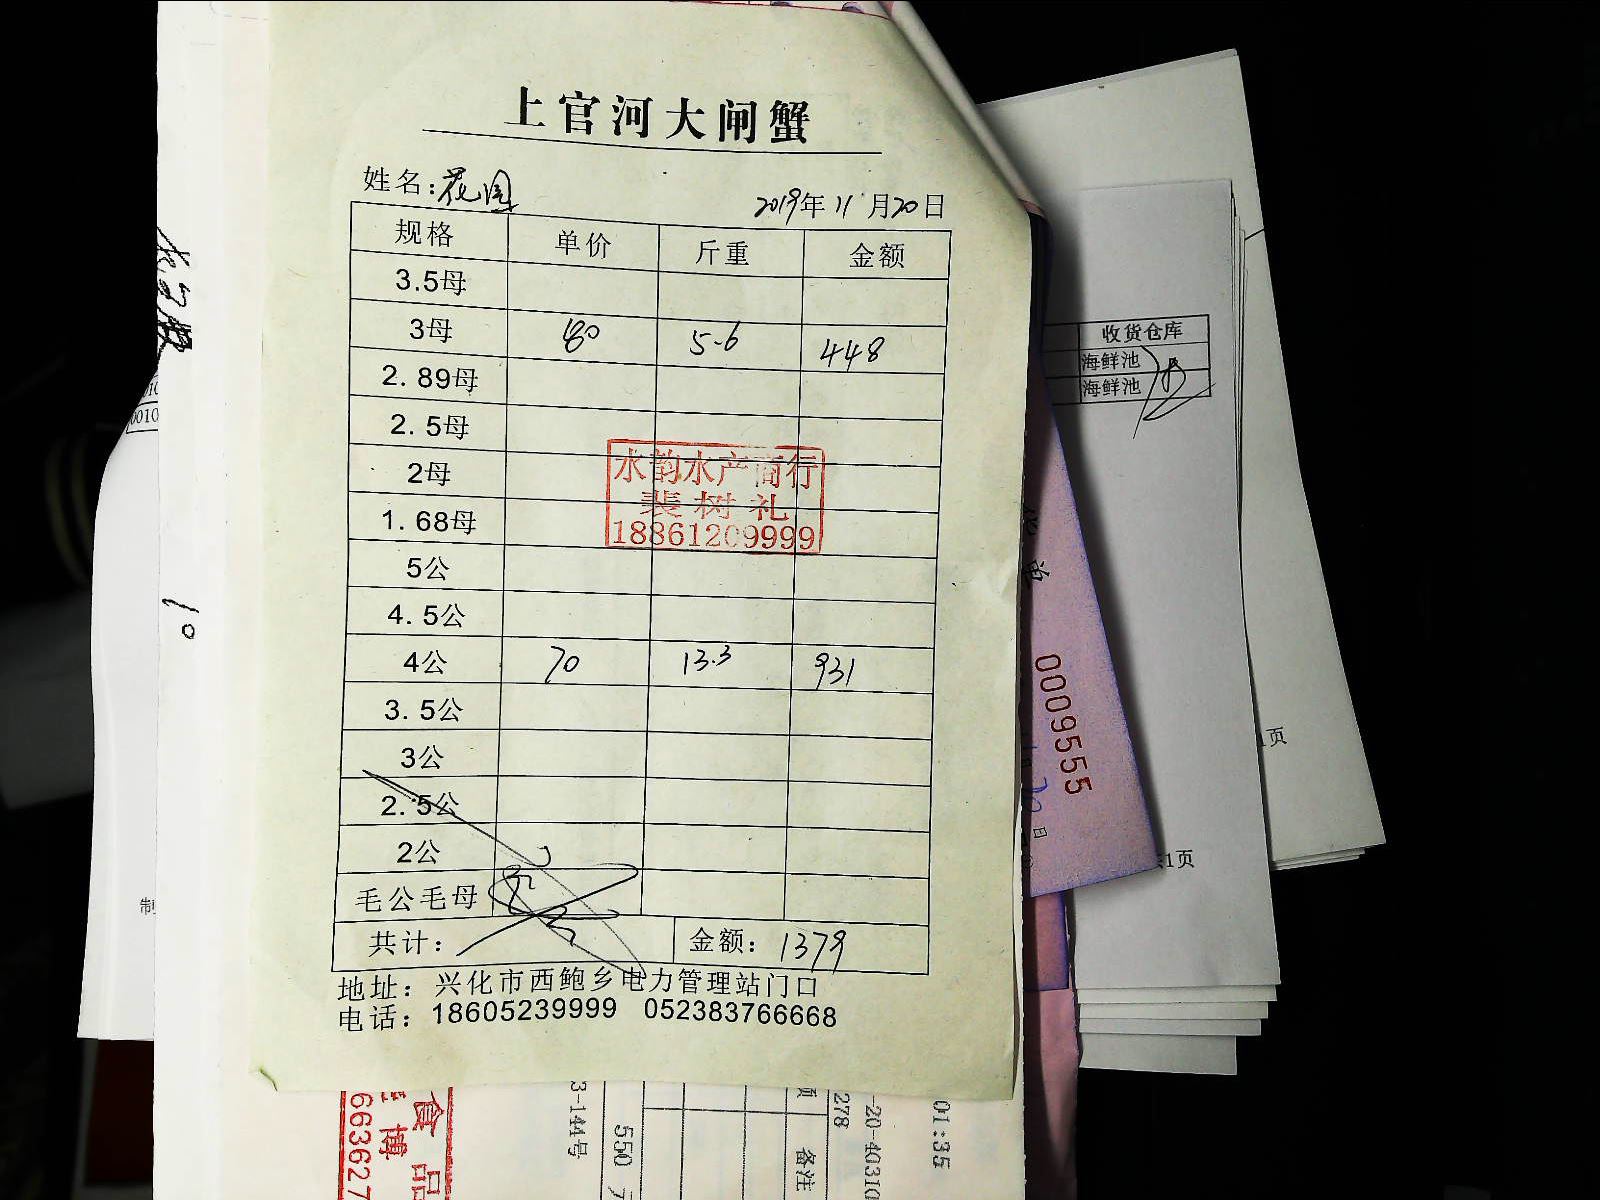 上官河大闸蟹
姓名：花园
2019年11月20日
规格 单价 斤重 金额
3.5母
3母 80 5.6 448
2.89母
2.5母
2母
1.68母
5公
4.5公
4公 70 13.3 931
3.5公
3公
2.5公
2公
毛公毛母
共计： 金额：1379
地址：兴化市西鲍乡电力管理站门口
电话：18605239999 052383766668
水韵水产商行
裴树礼
18861209999
收货仓库
海鲜池
海鲜池
0009555
日
1页
1页
10
0010
制
食品
博
663627
3-144号
550
278
备注
-20-40310
01:35